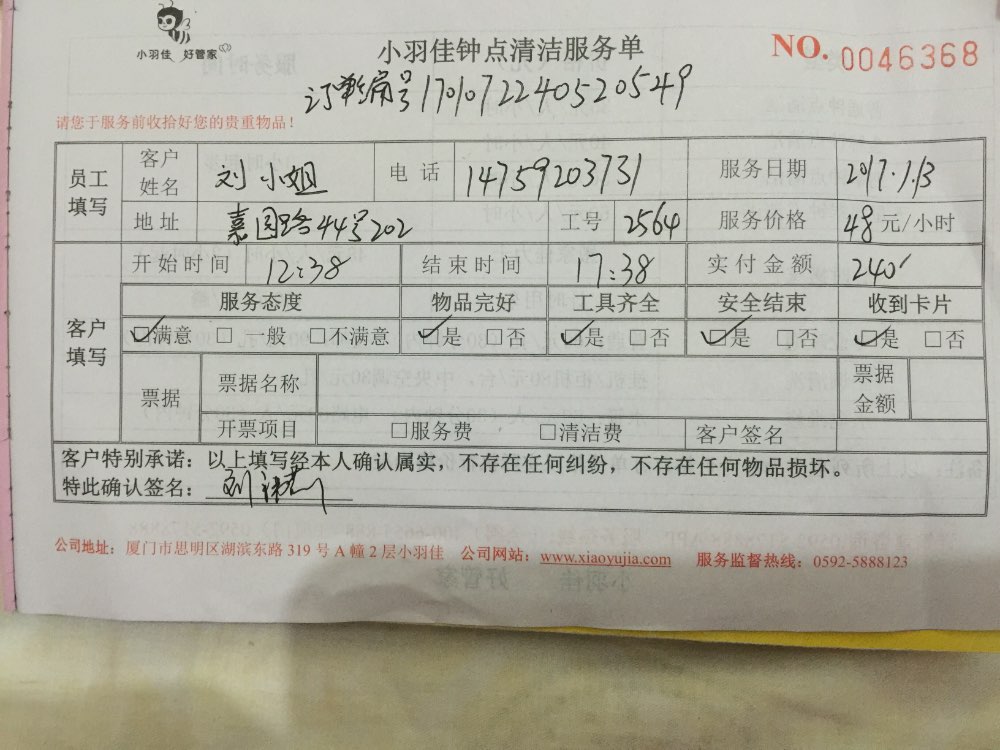 小羽佳 好管家
小羽佳钟点清洁服务单
NO. 0046368
订单编号1701072240520549
请您于服务前收拾好您的贵重物品！
员工填写 客户姓名 刘小姐 电话 14759203731 服务日期 2017.1.13
地址 嘉园路44号202 工号 2564 服务价格 48元/小时
客户填写 开始时间 12:38 结束时间 17:38 实付金额 240
服务态度 物品完好 工具齐全 安全结束 收到卡片
☑满意 □一般 □不满意 ☑是 □否 ☑是 □否 ☑是 □否 ☑是 □否
票据 票据名称 票据金额
开票项目 □服务费 □清洁费 客户签名
客户特别承诺：以上填写经本人确认属实，不存在任何纠纷，不存在任何物品损坏。
特此确认签名：刘
公司地址：厦门市思明区湖滨东路 319 号 A 幢 2 层小羽佳 公司网站：www.xiaoyujia.com 服务监督热线：0592-5888123